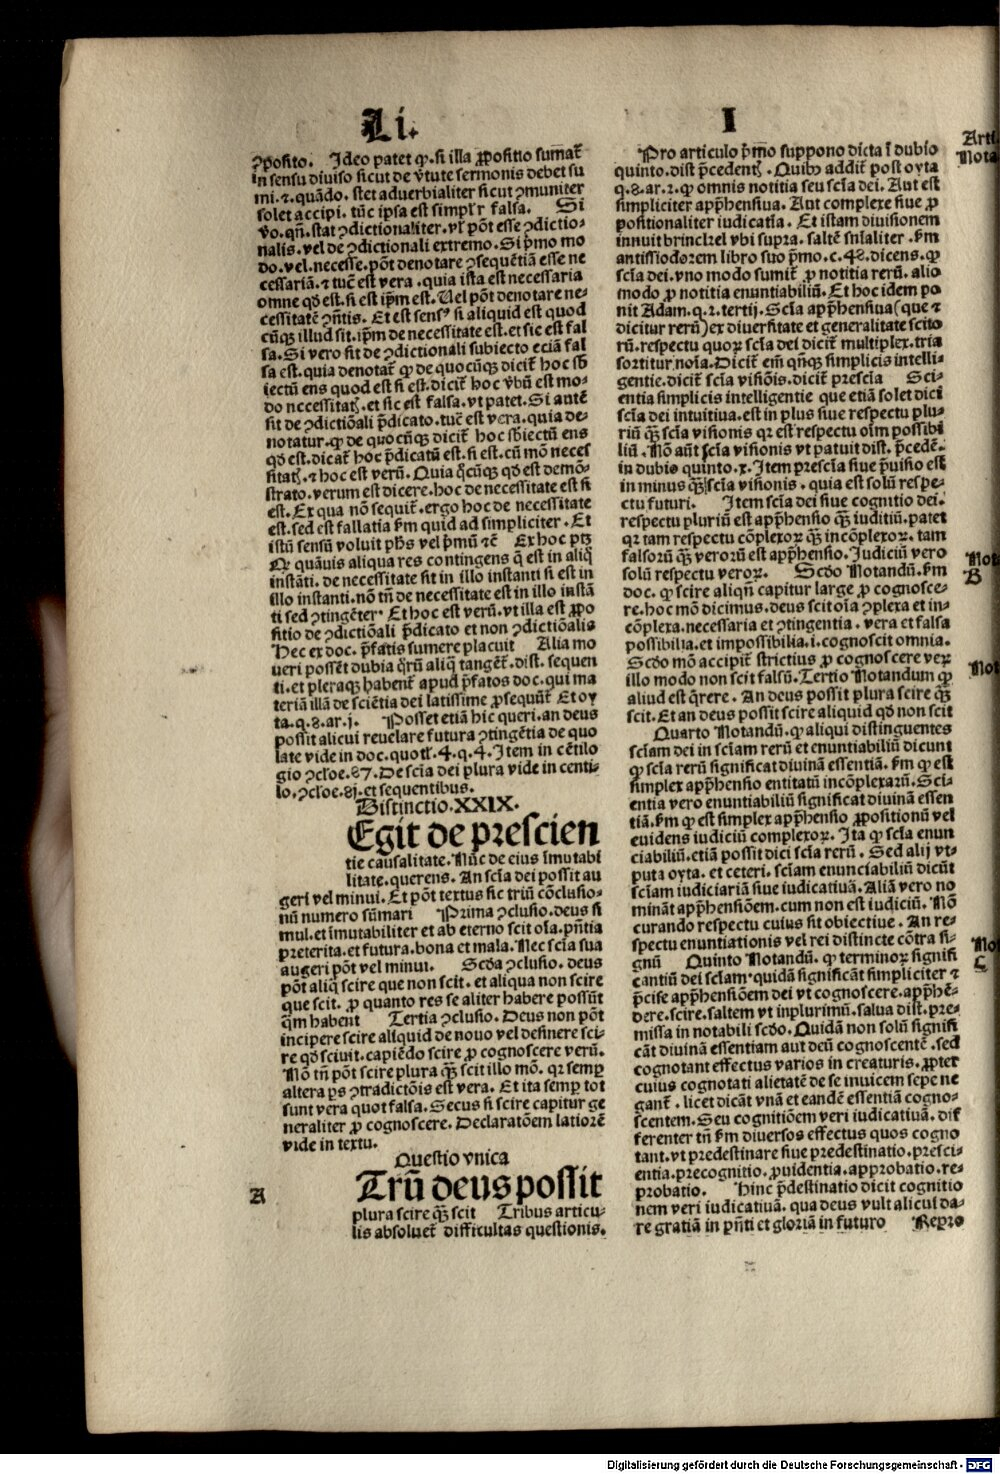 Li.
I
ꝓposito. Ideo patet ꝙ. si illa ꝓpositio sumat̃
in sensu diuiso sicut de ꝟtute sermonis debet su
mi. ⁊. quãdo. stet aduerbialiter sicut ꝯmuniter
solet accipi. tũc ipsa est simplr̃ falsa. Si
ꝟo. qñ. stat ꝯdictionaliter. vl̃ põt esse ꝯdictio-
nalis. vel de ꝯdictionali extremo. Si pͥmo mo
do. vel. necesse. põt denotare ꝯsequẽtiã esse ne
cessariã. ⁊ tũc est vera. quia ista est necessaria
omne qd̃ est. si est ip̃m est. Uel põt denotare ne-
cessitatẽ ꝯñtis. Et est sensꝰ si aliquid est quod
cũqꝫ illud sit. ip̃m de necessitate est. et sic est fal
sa. Si vero sit de ꝯdictionali subiecto eciã fal
sa est. quia denotat̃ ꝙ de quocũqꝫ dicit̃ hoc sb̃
iectũ ens quod est si est. dicit̃ hoc ꝟbũ est mo-
do necessitatꝭ. et sic est falsa. vt patet. Si autẽ
sit de ꝯdictiõali p̃dicato. tũc est vera. quia de-
notatur. ꝙ de quocũqꝫ dicit̃ hoc sb̃iectũ ens
qd̃ est. dicat̃ hoc p̃dicatũ est. si est. cũ mõ neces
sitatꝭ. ⁊ hoc est verũ. Quia qͥcũqꝫ qd̃ est demõ-
strato. verum est dicere. hoc de necessitate est si
est. Ex qua nõ sequit̃. ergo hoc de necessitate
est. sed est fallatia ẜm quid ad simpliciter. Et
istũ sensũ voluit ph̃s vel pͥmũ ⁊c̃ Ex hoc ptꝫ
Qꝙ quãuis aliqua res contingens q̃ est in aliq̃
instãti. de necessitate sit in illo instanti si est in
illo instanti. nõ tñ de necessitate est in illo instã
ti sed ꝯtingẽter. Et hoc est verũ. vt illa est ꝓpo
sitio de ꝯdictiõali p̃dicato et non ꝯdictiõalis
Hec ex doc. p̃fatis sumere placuit Alia mo
ueri possẽt dubia q̃rũ aliq̃ tangẽt̃. dist. sequen
ti. et pleraqꝫ habent̃ apud p̃fatos doc. qui ma
teriã illã de sciẽtia dei latissime ꝓsequũt̃ Et oy
ta. q. 8. ar. j. Posset etiã hic queri. an deus
possit alicui reuelare futura ꝯtingẽtia de quo
late vide in doc. quotꝭ. 4. q. 4. Item in cẽtilo
gio ꝯcloe. 87. De scĩa dei plura vide in centi-
lo. ꝯcloe. 8j. et sequentibus.
Distinctio. XXIX.
Egit de prescien
tie causalitate. Nũc de eius ĩmutabi
litate. querens. An scĩa dei possit au
geri vel minui. Et põt textus sic triũ cõclusio-
nũ numero sũmari Prima ꝯclusio. deus si
mul. et ĩmutabiliter et ab eterno scit oĩa. pñtia
preterita. et futura. bona et mala. Nec scĩa sua
augeri põt vel minui. Scd̃a ꝯclusio. deus
põt aliq̃ scire que non scit. et aliqua non scire
que scit. ꝓ quanto res se aliter habere possũt
q̃m habent Tertia ꝯclusio. Deus non põt
incipere scire aliquid de nouo vel desinere sci-
re qd̃ sciuit. capiẽdo scire ꝓ cognoscere verũ.
Nõ tñ põt scire plura qꝫ̃ scit illo mõ. qr semꝑ
altera ꝑs ꝯtradictõis est vera. Et ita semꝑ tot
sunt vera quot falsa. Secus si scire capitur ge
neraliter ꝓ cognoscere. Declaratõem latiorẽ
vide in textu.
Questio vnica
A
Trũ deus possit
plura scire qꝫ̃ scit Tribus articu-
lis absoluet̃ difficultas questionis.
Arti.
Pro articulo pͥmo suppono dicta ĩ dubio
Nota
quinto. dist p̃cedentꝭ. Quibꝰ addit̃ post oyta
q. 8. ar. 2. ꝙ omnis notitia seu scĩa dei. Aut est
simpliciter app̃hensiua. Aut complexe siue ꝓ
positionaliter iudicatia. Et istam diuisionem
innuit brinckel vbi supra. saltẽ sñialiter. ẜm
antissiodorem libro suo pͥmo. c. 48. dicens. ꝙ
scĩa dei. vno modo sumit̃ ꝓ notitia rerũ. alio
modo ꝓ notitia enuntiabiliũ. Et hoc idem po
nit Adam. q. 2. tertij. Scĩa app̃hensiua (que ⁊
dicitur rerũ) ex diuersitate et generalitate scito
rũ. respectu quoꝝ scĩa dei dicit̃ multiplex. tria
sortitur noĩa. Dicit̃ em̃ qñqꝫ simplicis intelli-
gentie. dicit̃ scĩa visiõis. dicit̃ prescĩa Sci-
entia simplicis intelligentie que etiã solet dici
scĩa dei intuitiua. est in plus siue respectu plu-
riũ qꝫ̃ scĩa visionis qr est respectu oĩm possibi
liũ. Nõ aũt scĩa visionis vt patuit dist. p̃cedẽ.
in dubio quinto. x. Item prescĩa siue p̃uisio est
in minus qꝫ̃ scĩa visionis. quia est solũ respe-
ctu futuri. Item scĩa dei siue cognitio dei.
respectu pluriũ est app̃hensio qꝫ̃ iuditiũ. patet
qr tam respectu cõplexoꝝ qꝫ̃ incõplexoꝝ. tam
falsorũ qꝫ̃ verorũ est app̃hensio. Iudiciũ vero
Not
B
solũ respectu veroꝝ. Scd̃o Notandũ. ẜm
doc. ꝙ scire aliqñ capitur large ꝓ cognosce-
re. hoc mõ dicimus. deus scit oĩa ꝯplexa et in-
cõplexa. necessaria et ꝯtingentia. vera et falsa
possibilia. et impossibilia. i. cognoscit omnia.
Scd̃o mõ accipit̃ strictius ꝓ cognoscere veꝝ
Not
illo modo non scit falsũ. Tertio Notandum ꝙ
aliud est q̃rere. An deus possit plura scire qꝫ̃
scit. Et an deus possit scire aliquid qd̃ non scit
Quarto Notandũ. ꝙ aliqui distinguentes
scĩam dei in scĩam rerũ et enuntiabiliũ dicunt
ꝙ scĩa rerũ significat diuinã essentiã. ẜm ꝙ est
simplex app̃hensio entitatũ incõplexarũ. Sci-
entia vero enuntiabiliũ significat diuinã essen
tiã. ẜm ꝙ est simplex app̃hensio ꝓpositionũ vel
euidens iudiciũ complexoꝝ. Ita ꝙ scĩa enun
ciabiliũ. etiã possit dici scĩa rerũ. Sed alij vt-
puta oyta. et ceteri. scĩam enunciabiliũ dicũt
scĩam iudiciariã siue iudicatiuã. Aliã vero no
minãt app̃hensiõem. cum non est iudiciũ. Nõ
curando respectu cuius sit obiectiue. An re-
spectu enuntiationis vel rei distincte cõtra si-
Not
C
gnũ Quinto Notandũ. ꝙ terminoꝝ signifi
cantiũ dei scĩam. quidã significãt simpliciter ⁊
p̃cise app̃hensiõem dei vt cognoscere. app̃hẽ-
dere. scire. saltem vt inplurimũ. salua dist. pre-
missa in notabili scd̃o. Quidã non solũ signifi
cãt diuinã essentiam aut deũ cognoscentẽ. sed
cognotant effectus varios in creaturis. ꝓpter
cuius cognotati alietatẽ de se inuicem sepe ne
gant̃. licet dicãt vnã et eandẽ essentiã cogno-
scentem. Seu cognitiõem veri iudicatiuã. dif
ferenter tñ ẜm diuersos effectus quos cogno
tant. vt predestinare siue predestinatio. presci-
entia. precognitio. ꝓuidentia. approbatio. re-
probatio. Hinc p̃destinatio dicit cognitio
nem veri iudicatiuã. qua deus vult alicui da-
re gratiã in pñti et gloriã in futuro Repro
Digitalisierung gefördert durch die Deutsche Forschungsgemeinschaft - DFG